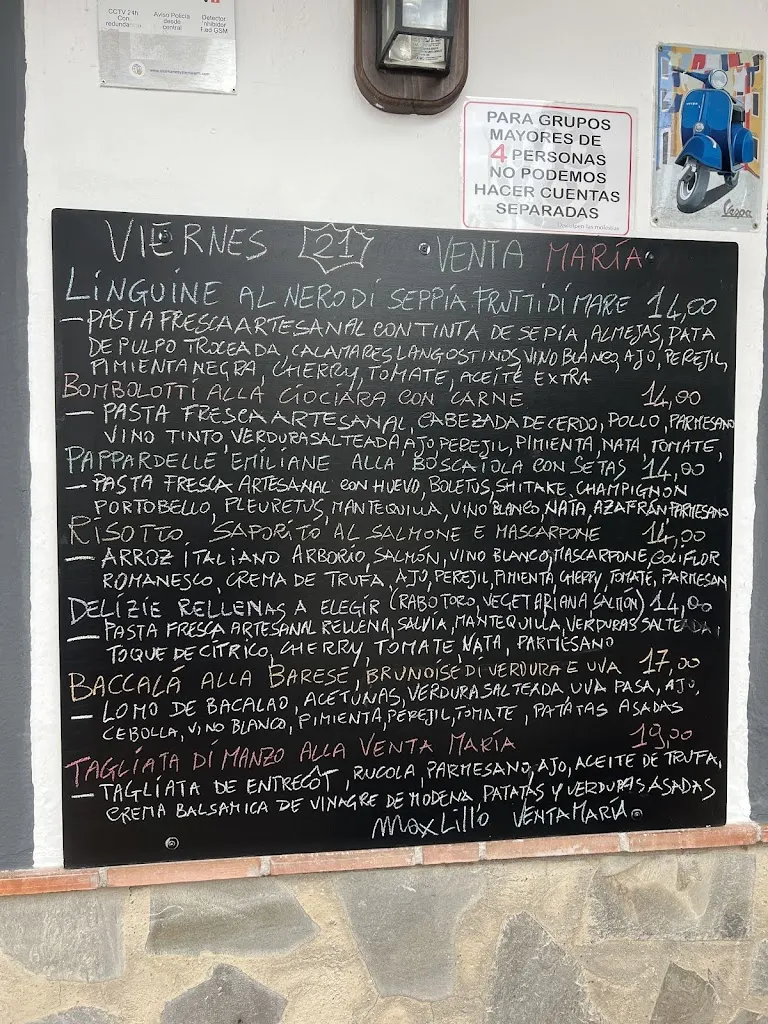 CCTV 24h
Con
Aviso Policía
desde
central
Detector
inhibidor
Red GSM
PARA GRUPOS
MAYORES DE
4 PERSONAS
NO PODEMOS
HACER CUENTAS
SEPARADAS
Vespa
VIERNES 21 VENTA MARÍA
LINGUINE AL NERO DI SEPPIA FRUTTI DI MARE 14,00
– PASTA FRESCA ARTESANAL CON TINTA DE SEPIA, ALMEJAS, PATA
DE PULPO TROCEADA, CALAMARES LANGOSTINOS, VINO BLANCO, AJO, PEREJIL,
PIMIENTA NEGRA, CHERRY, TOMATE, ACEITE EXTRA
BOMBOLOTTI ALLA CIOCIARA CON CARNE 14,00
– PASTA FRESCA ARTESANAL, CABEZADA DE CERDO, POLLO, PARMESANO
VINO TINTO, VERDURA SALTEADA AJO, PEREJIL, PIMIENTA, NATA, TOMATE,
PAPPARDELLE EMILIANE ALLA BOSCAIOLA CON SETAS 14,00
– PASTA FRESCA ARTESANAL CON HUEVO, BOLETUS, SHITAKE, CHAMPIGNON
PORTOBELLO, PLEURETUS, MANTEQUILLA, VINO BLANCO, NATA, AZAFRÁN PARMESANO
RISOTTO SAPORITO AL SALMONE E MASCARPONE 14,00
– ARROZ ITALIANO ARBORIO, SALMÓN, VINO BLANCO, MASCARPONE, COLIFLOR
ROMANESCO, CREMA DE TRUFA, AJO, PEREJIL, PIMIENTA CHERRY, TOMATE, PARMESAN
DELIZIE RELLENAS A ELEGIR (RABO TORO, VEGETARIANA, SALMÓN) 14,00
– PASTA FRESCA ARTESANAL RELLENA, SALVIA, MANTEQUILLA, VERDURAS SALTEADA,
TOQUE DE CÍTRICO, CHERRY, TOMATE, NATA, PARMESANO
BACCALÁ ALLA BARESE, BRUNOISE DI VERDURA E UVA 17,00
– LOMO DE BACALAO, ACETUNAS, VERDURA SALTEADA UVA PASA, AJO,
CEBOLLA, VINO BLANCO, PIMIENTA, PEREJIL, TOMATE, PATATAS ASADAS
TAGLIATA DI MANZO ALLA VENTA MARÍA 19,00
– TAGLIATA DE ENTRECÔT, RUCOLA, PARMESANO, AJO, ACEITE DE TRUFA,
CREMA BALSAMICA DE VINAGRE DE MODENA, PATATAS Y VERDURAS ASADAS
Max Lillo VENTA MARÍA